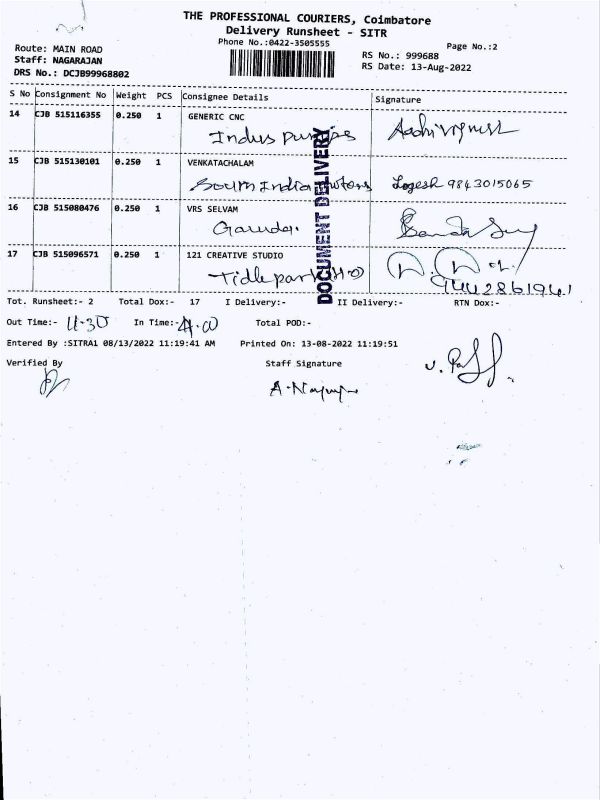 THE PROFESSIONAL COURIERS, Coimbatore
Delivery Runsheet - SITR
Phone No.:0422-3505555
Page No.:2
Route: MAIN ROAD
Staff: NAGARAJAN
DRS No.: DCJB99968802
RS No.: 999688
RS Date: 13-Aug-2022
S No Consignment No Weight PCS Consignee Details Signature
14 CJB 515116355 0.250 1 GENERIC CNC
Indus pumps
15 CJB 515130101 0.250 1 VENKATACHALAM
South India Motors Logesh 9843015065
16 CJB 515080476 0.250 1 VRS SELVAM
Garuda.
17 CJB 515096571 0.250 1 121 CREATIVE STUDIO
Tidle park (H.O)
9442861941
DOCUMENT DELIVERY
Tot. Runsheet:- 2 Total Dox:- 17 I Delivery:- II Delivery:- RTN Dox:-
Out Time:- 11-30 In Time:- 4.00 Total POD:-
Entered By :SITRA1 08/13/2022 11:19:41 AM Printed On: 13-08-2022 11:19:51
Verified By Staff Signature